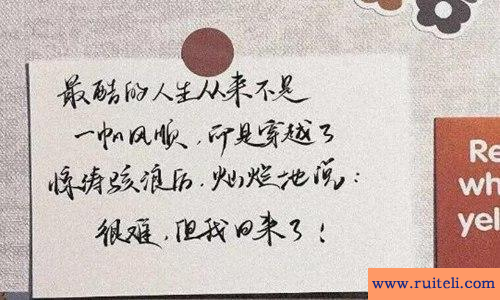 最酷的人生从来不是
一帆风顺，而是穿越了
惊涛骇浪后，灿烂地说：
很难，但我回来了！
Re
wh
yel
www.ruiteli.com